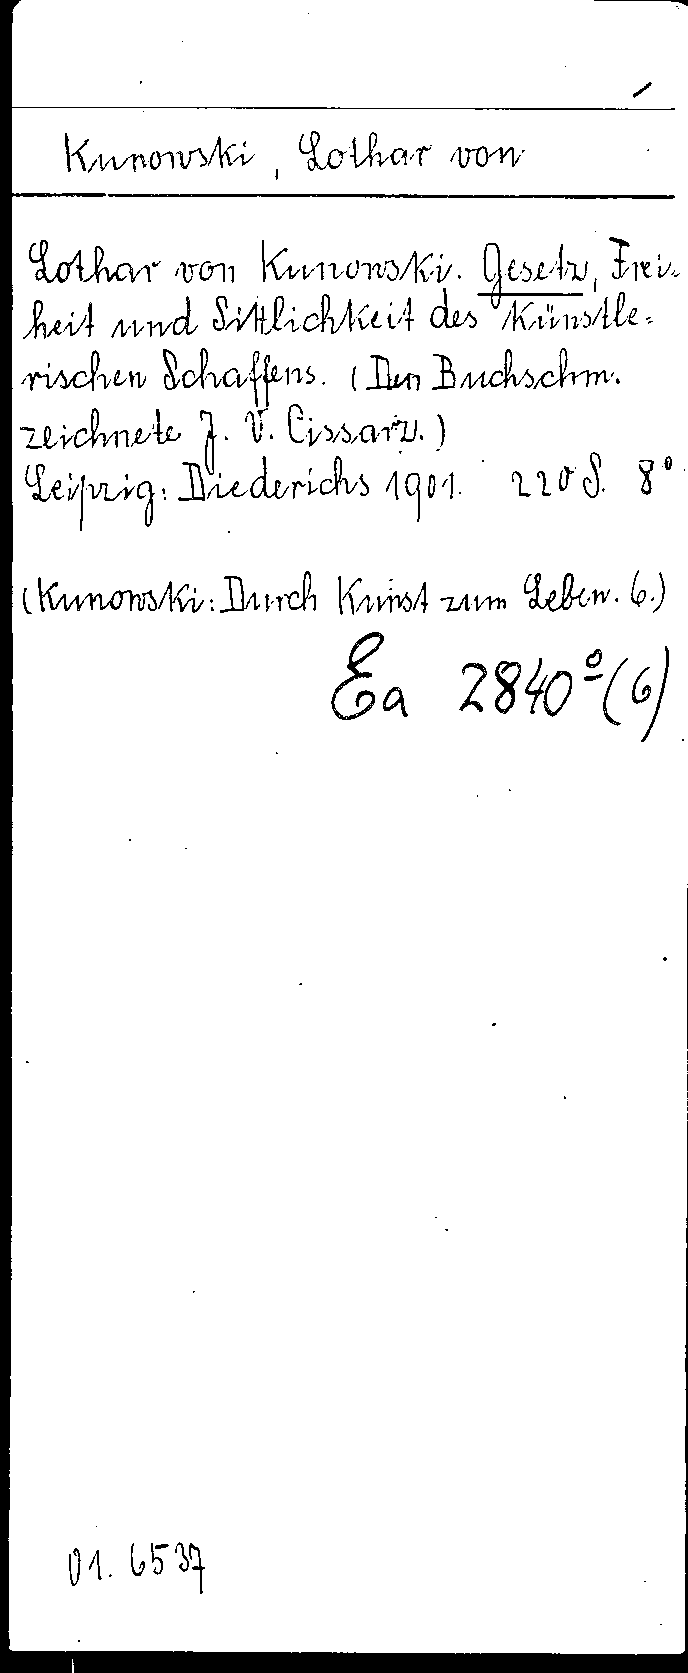 Kunowski, Lothar von
Lothar von Kunowski. Gesetz, Frei-
heit und Sittlichkeit des künstle-
rischen Schaffens. (Den Buchschm.
zeichnete J. V. Cissarz.)
Leipzig: Diederichs 1901. 220 S. 8°
(Kunowski: Durch Kunst zum Leben. 6.)
Ea 2840°(6)
01. 6537